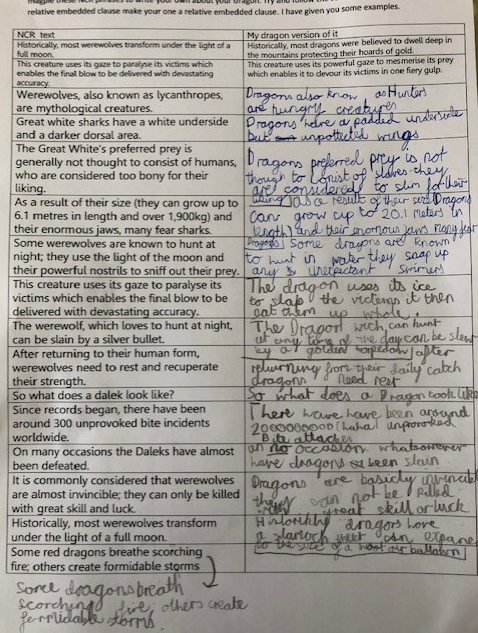 relative embedded clause make your one a relative embedded clause. I have given you some examples.
NCR text
My dragon version of it
Historically, most werewolves transform under the light of a
full moon.
Historically, most dragons were believed to dwell deep in
the mountains protecting their hoards of gold.
This creature uses its gaze to paralyse its victims which
enables the final blow to be delivered with devastating
accuracy.
This creature uses its powerful gaze to mesmerise its prey
which enables it to devour its victims in one fiery gulp.
Werewolves, also known as lycanthropes,
are mythological creatures.
Dragons also know as Hunters
are hungry creatures
Great white sharks have a white underside
and a darker dorsal area.
Dragons have a padded underside
but unpottected wings
The Great White's preferred prey is
generally not thought to consist of humans,
who are considered too bony for their
liking.
Dragons preferred prey is not
though to consist of slaves they
are considered to slim for their
liking
As a result of their size (they can grow up to
6.1 metres in length and over 1,900kg) and
their enormous jaws, many fear sharks.
As a result of their size Dragons
can grow up to 20.1 meters in
length) and their enormous jaws many fear
Dragons
Some werewolves are known to hunt at
night; they use the light of the moon and
their powerful nostrils to sniff out their prey.
Some dragons are known
to hunt in water they snap up
any unexpectant swimmers
This creature uses its gaze to paralyse its
victims which enables the final blow to be
delivered with devastating accuracy.
The dragon uses its ice
to slap the victems it then
eat them up whole.
The werewolf, which loves to hunt at night,
can be slain by a silver bullet.
The Dragon wich can hunt
at any time of the day can be slen
by a golden torpedow
After returning to their human form,
werewolves need to rest and recuperate
their strength.
after
returning from their daily catch
dragons need rest
So what does a dalek look like?
So what does a Dragon look like
Since records began, there have been
around 300 unprovoked bite incidents
worldwide.
There have been around
2000000000 (haha) unprovoked
Bite attackes
On many occasions the Daleks have almost
been defeated.
on no occasion whatsoever
have dragons been slain
It is commonly considered that werewolves
are almost invincible; they can only be killed
with great skill and luck.
Dragons are basicly invincible
they can not be killed
with great skill or luck
Historically, most werewolves transform
under the light of a full moon.
dragons have
a
to the size of a hot air balloon
Some red dragons breathe scorching
fire; others create formidable storms
Some dragons breath
scorching fire; others create
formidable storms.